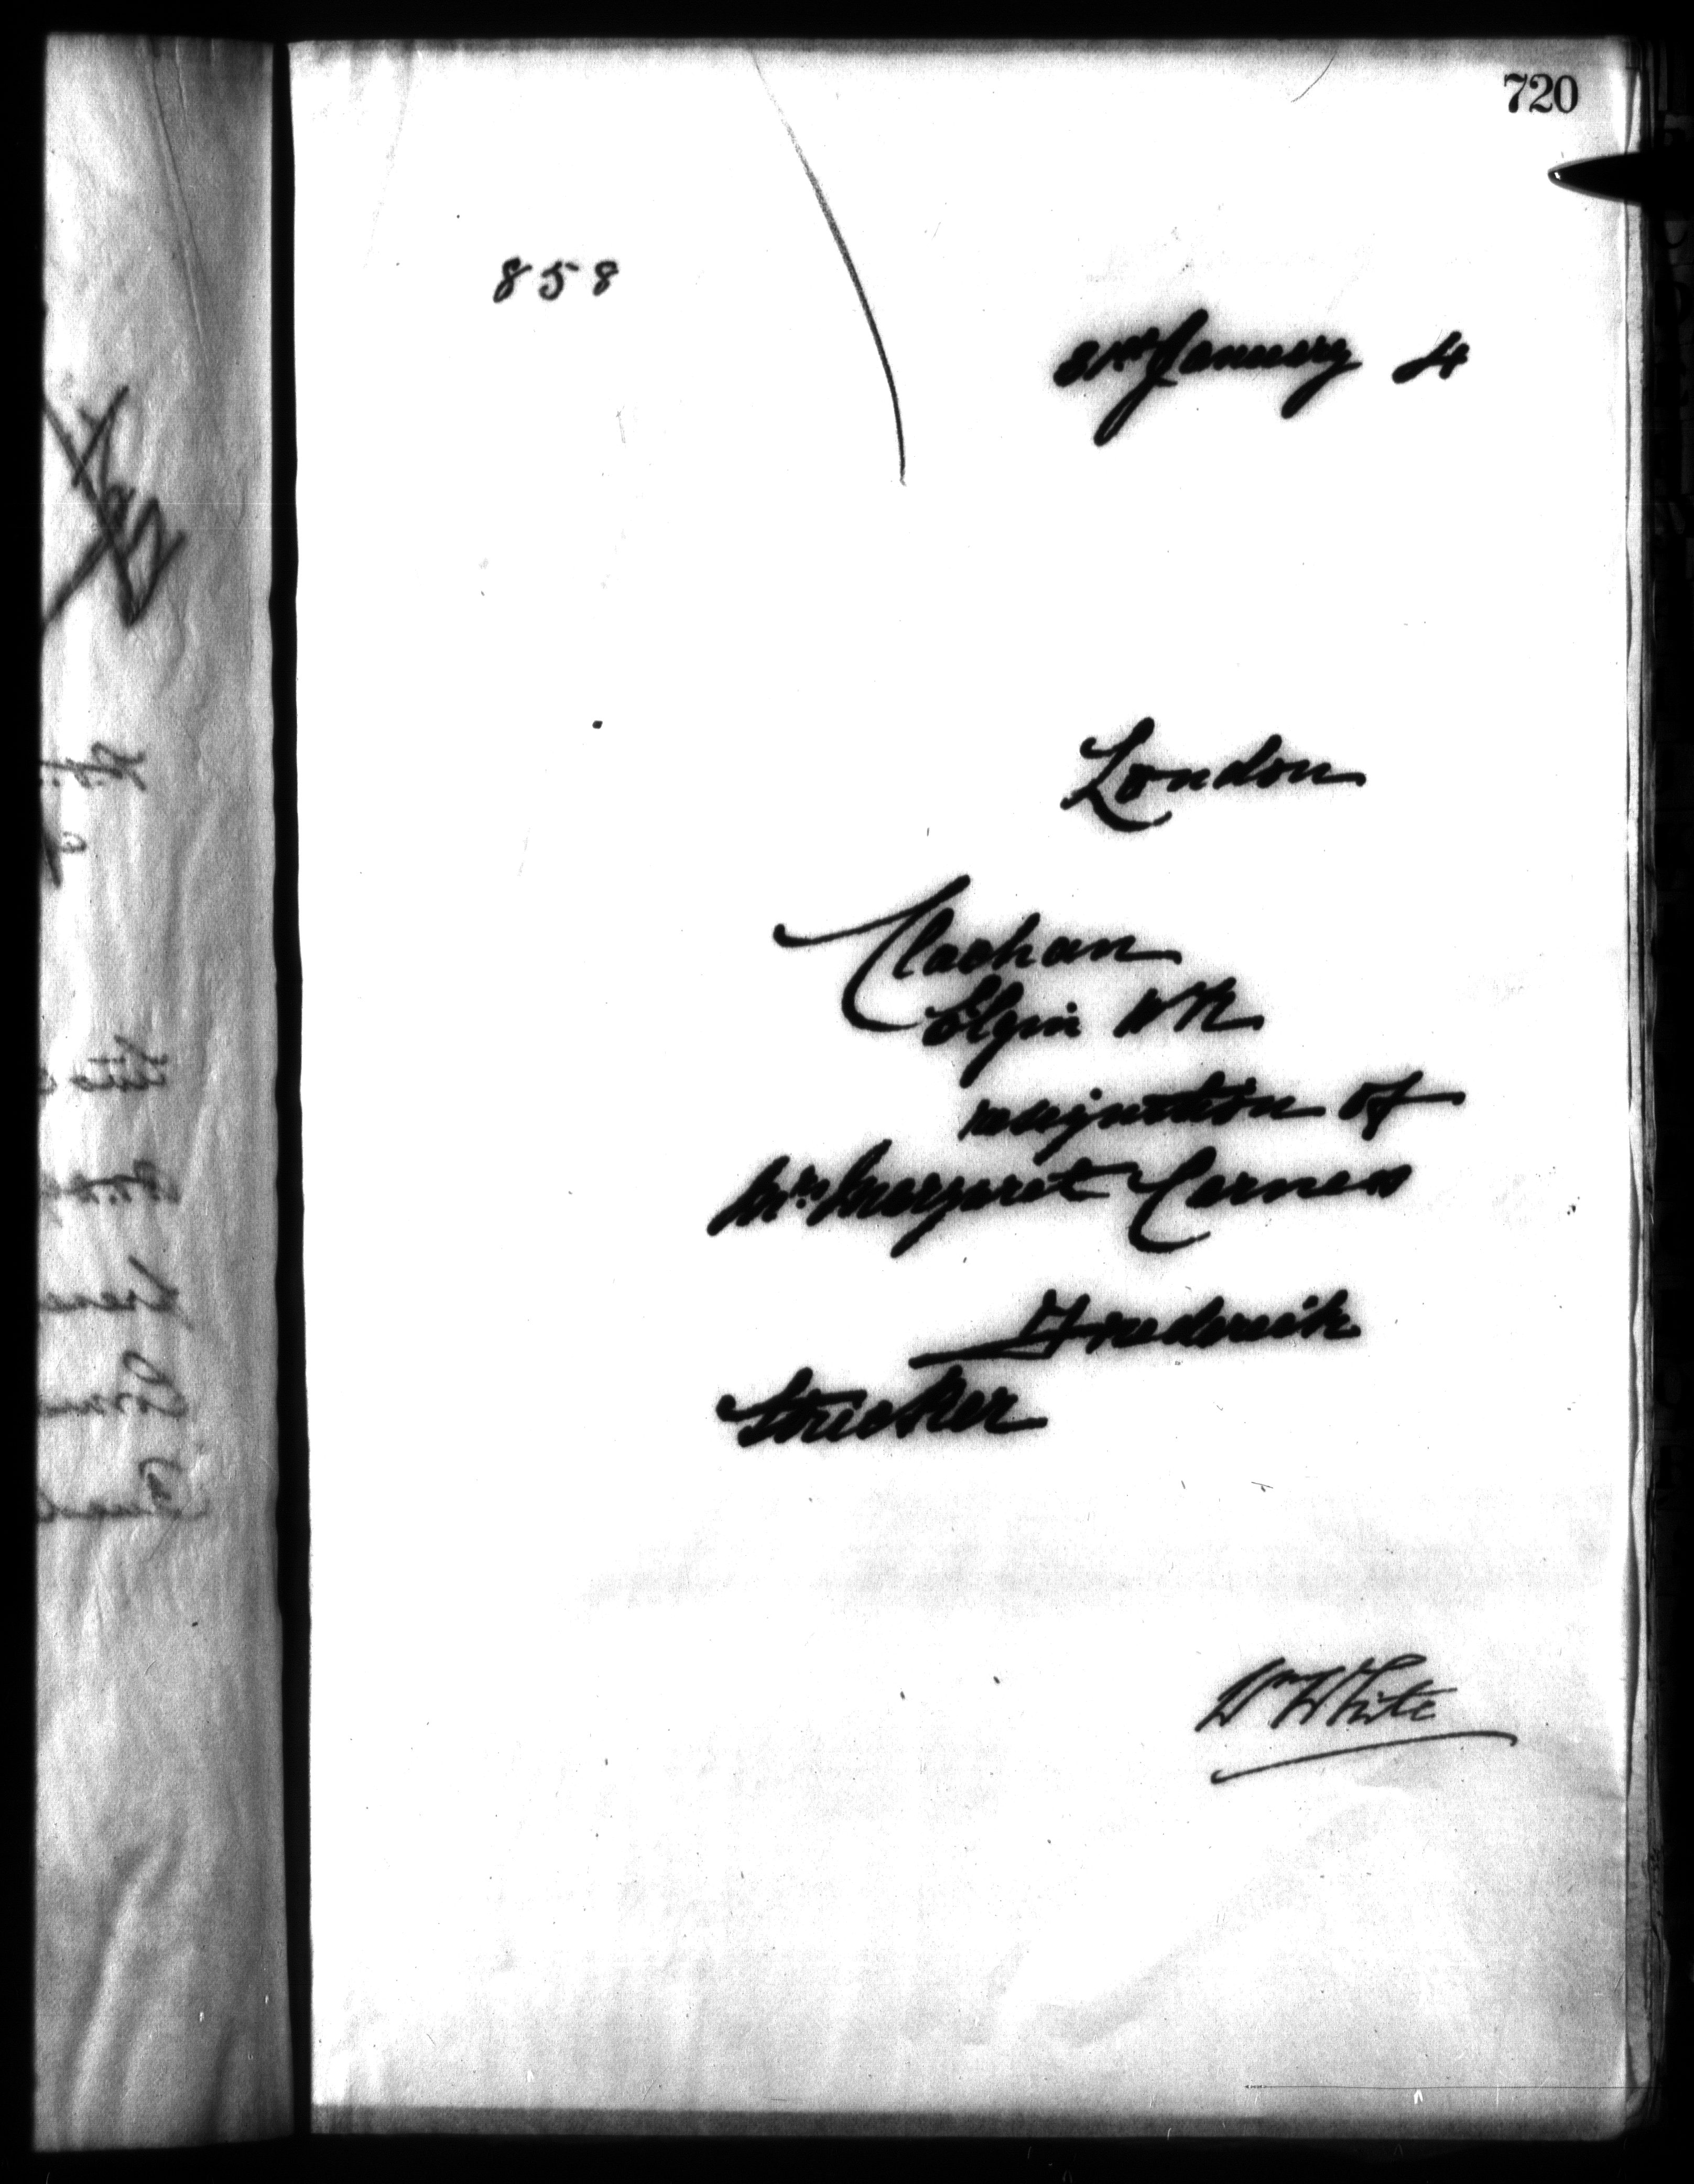 720
858
21st January 4
London
Clachan
Elgin WR
resignation of
Mrs. Margaret Carness
Frederick
Stricker
Wm White